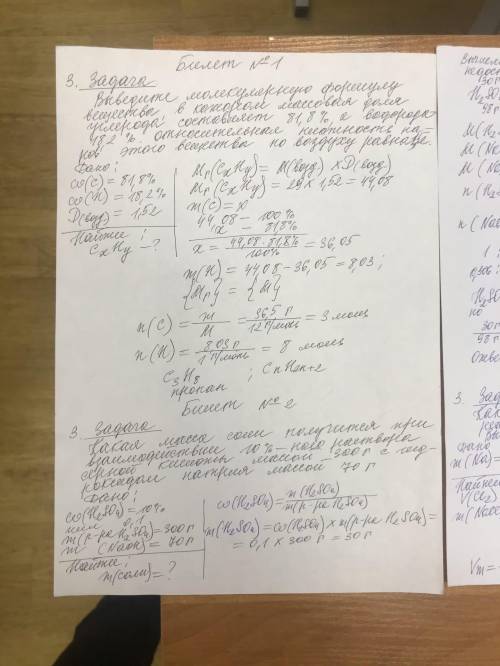 Билет № 1
3. Задача
Выведите молекулярную формулу
вещества, в котором массовая доля
углерода составляет 81,8%, а водорода
18,2%. Относительная плотность па-
ров этого вещества по воздуху равна 1,52.
Дано:
ω(C) = 81,8%
ω(H) = 18,2%
D(возд) = 1,52
Найти:
CxHy - ?
Mr(CxHy) = M(возд) × D(возд)
Mr(CxHy) = 29 × 1,52 = 44,08
m(C) = x
44,08 - 100%
x - 81,8%
x = 44,08 · 81,8% / 100% = 36,05
m(H) = 44,08 - 36,05 = 8,03;
{Mr} = {M}
n(C) = m / M = 36,5 г / 12 г/моль = 3 моль
n(H) = 8,03 г / 1 г/моль = 8 моль
C3H8 ; CnH2n+2
пропан
Билет № 2
3. Задача
Какая масса соли получится при
взаимодействии 10%-ного раствора
серной кислоты массой 300 г с гид-
роксидом натрия массой 70 г
Дано:
ω(H2SO4) = 10%
или 0,1
m(р-ра H2SO4) = 300 г
m (NaOH) = 70 г
Найти:
m(соли) = ?
ω(H2SO4) = m(H2SO4) / m(р-ра H2SO4)
m(H2SO4) = ω(H2SO4) × m(р-ра H2SO4) =
= 0,1 × 300 г = 30 г
Вычисл
недост
130 г
H2SO
98 г
M(H2
M(Na
M(Na
n(H2
n(Na
1 :
0,306 :
H2SO
но
30 г
98 г
Ответ
3. Зада
Дано
m(Na) =
Найти
V(Cl2)
m(NaCl
Vm = -